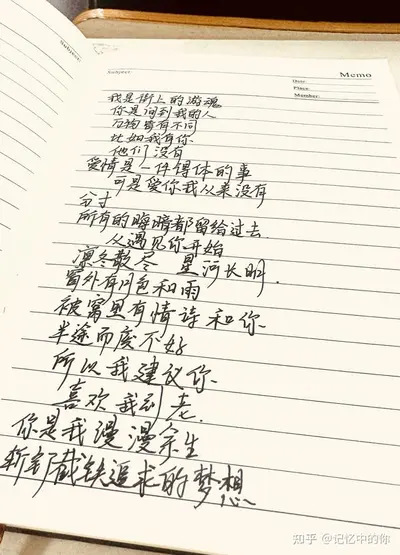 Subject:
Memo
Date:
Place:
Member:
我是街上的游魂
你是闻到我的人
万物皆有不同
比如我有你
他们没有
爱情是一件得体的事
可是爱你我从来没有
分寸
所有的晦暗都留给过去
从遇见你开始
凛冬散尽 星河长明.
窗外有月色和雨
被窝里有情诗和你
半途而废不好
所以我建议你
喜欢我到老.
你是我漫漫余生
斩钉截铁追求的梦想
知乎 @记忆中的你